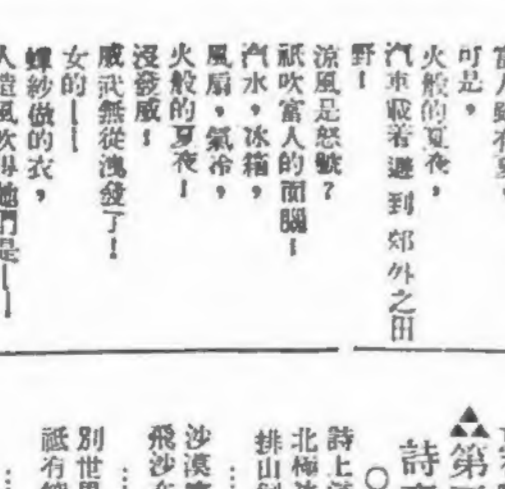 富人雖有夏，
可是，
火般的夏夜，
汽車载着避到郊外之田
野！
涼風是怒號？
祇吹富人的面腦！
汽水，冰箱，
風扇，氣冷，
火般的夏夜！
沒發威！
威武無從洩發了！
女的——
蟬紗做的衣，
人造風吹得她們是——
第
詩
○
詩上
北極冰
排山倒
沙漠
飛沙
別世界
祗有